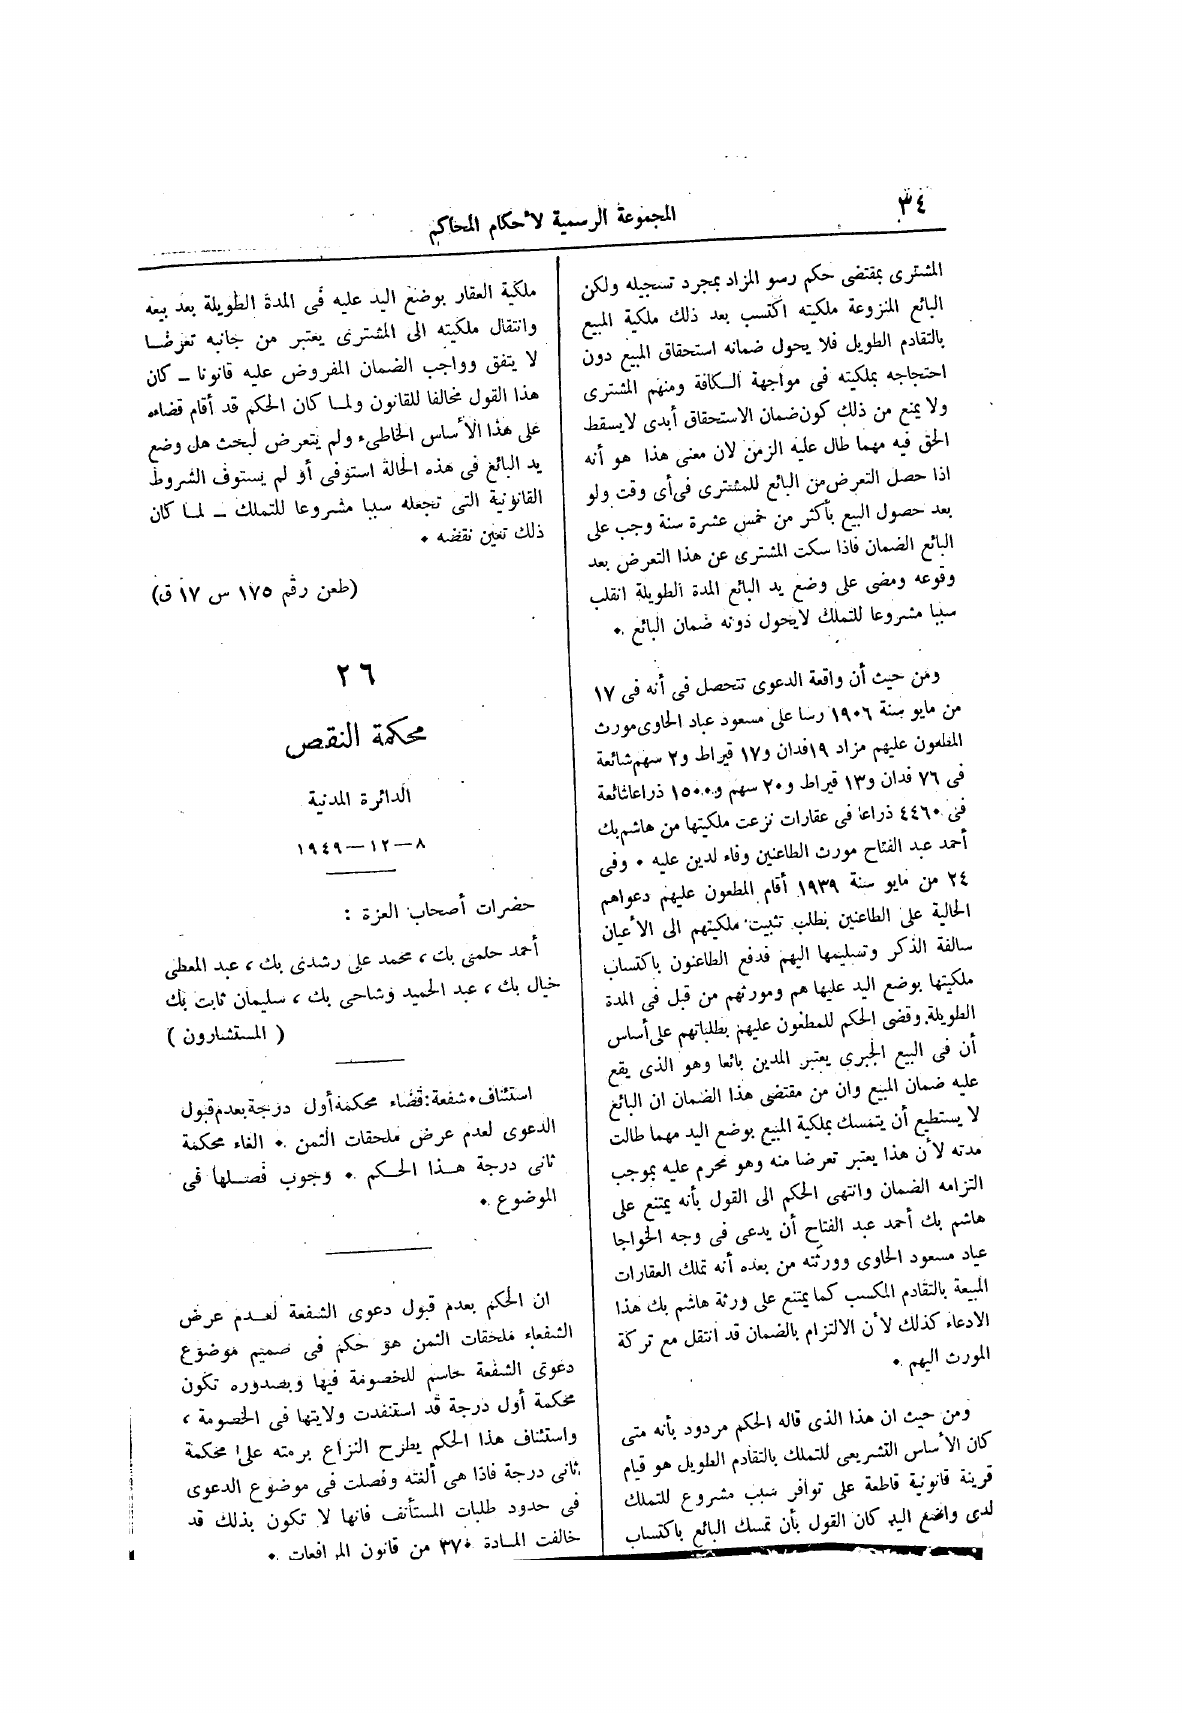 ٣٤
المجموعة الرسمية لأحكام المحاكم
المشترى بمقتضى حكم رسو المزاد بمجرد تسجيله ولكن
البائع المنزوعة ملكيته اكتسب بعد ذلك ملكية المبيع
بالتقادم الطويل فلا يحول ضمانه استحقاق المبيع دون
احتجاجه بملكيته فى مواجهة الكافة ومنهم المشترى
ولا يمنع من ذلك كون ضمان الاستحقاق أبدى لا يسقط
الحق فيه مهما طال عليه الزمن لان معنى هذا هو أنه
اذا حصل التعرض من البائع للمشترى فى أى وقت ولو
بعد حصول البيع بأكثر من خمس عشرة سنة وجب على
البائع الضمان فاذا سكت المشترى عن هذا التعرض بعد
وقوعه ومضى على وضع يد البائع المدة الطويلة انقلب
سببا مشروعا للتملك لا يحول دونه ضمان البائع .
ومن حيث أن واقعة الدعوى تتحصل فى أنه فى ١٧
من مايو سنة ١٩٠٦ رسا على مسعود عباد الحاوى مورث
المطعون عليهم مزاد ١٩ فدان و١٧ قيراط و٢ سهم شائعة
فى ٧٦ فدان و١٣ قيراط و٢٠ سهم و١٥٠٠ ذراعا شائعة
فى ٤٤٦٠ ذراعا فى عقارات نزعت ملكيتها من هاشم بك
أحمد عبد الفتاح مورث الطاعنين وفاء لدين عليه . وفى
٢٤ من مايو سنة ١٩٣٩ أقام المطعون عليهم دعواهم
الحالية على الطاعنين بطلب تثبيت ملكيتهم الى الأعيان
سالفة الذكر وتسليمها اليهم فدفع الطاعنون باكتساب
ملكيتها بوضع اليد عليها هم ومورثهم من قبل فى المدة
الطويلة وقضى الحكم للمطعون عليهم بطلباتهم على أساس
أن فى البيع الجبرى يعتبر المدين بائعا وهو الذى يقع
عليه ضمان المبيع وان من مقتضى هذا الضمان ان البائع
لا يستطيع أن يتمسك بملكية المبيع بوضع اليد مهما طالت
مدته لأن هذا يعتبر تعرضا منه وهو محرم عليه بموجب
التزامه الضمان وانتهى الحكم الى القول بأنه يمتنع على
هاشم بك أحمد عبد الفتاح أن يدعى فى وجه الخواجا
عياد مسعود الحاوى وورثته من بعده أنه تملك العقارات
المبيعة بالتقادم المكسب كما يمتنع على ورثة هاشم بك هذا
الادعاء كذلك لأن الالتزام بالضمان قد انتقل مع تركة
المورث اليهم .
ومن حيث ان هذا الذى قاله الحكم مردود بأنه متى
كان الأساس التشريعى للتملك بالتقادم الطويل هو قيام
قرينة قانونية قاطعة على توافر سبب مشروع للتملك
لدى واضع اليد كان القول بأن تمسك البائع باكتساب
ملكية العقار بوضع اليد عليه فى المدة الطويلة بعد بيعه
وانتقال ملكيته الى المشترى يعتبر من جانبه تعرضا
لا يتفق وواجب الضمان المفروض عليه قانونا – كان
هذا القول مخالفا للقانون ولما كان الحكم قد أقام قضاءه
على هذا الأساس الخاطىء ولم يتعرض لبحث هل وضع
يد البائع فى هذه الحالة استوفى أو لم يستوف الشروط
القانونية التى تجعله سببا مشروعا للتملك – لما كان
ذلك تعين نقضه .
(طعن رقم ١٧٥ س ١٧ ق)
٢٦
محكمة النقض
الدائرة المدنية
٨ – ١٢ – ١٩٤٩
حضرات أصحاب العزة :
أحمد حلمى بك ، محمد على رشدى بك ، عبد المعطى
خيال بك ، عبد الحميد وشاحى بك ، سليمان ثابت بك
( المستشارون )
استئناف . شفعة : قضاء محكمة أول درجة بعدم قبول
الدعوى لعدم عرض ملحقات الثمن . الغاء محكمة
ثانى درجة هذا الحكم . وجوب فصلها فى
الموضوع .
ان الحكم بعدم قبول دعوى الشفعة لعدم عرض
الشفعاء ملحقات الثمن هو حكم فى صميم موضوع
دعوى الشفعة حاسم للخصومة فيها وبصدوره تكون
محكمة أول درجة قد استنفدت ولايتها فى الخصومة ،
واستئناف هذا الحكم يطرح النزاع برمته على محكمة
ثانى درجة فاذا هى ألغته وفصلت فى موضوع الدعوى
فى حدود طلبات المستأنف فانها لا تكون بذلك قد
خالفت المادة ٣٧٠ من قانون المرافعات .